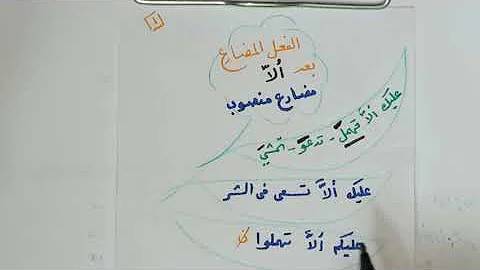 ١
الفعل المضارع
بعد ألاَّ
مضارع منصوب
عليك ألاَّ تهملَ - تدعوَ - تمشيَ
عليك ألاَّ تسعى فى الشر
عليكم ألاَّ تهملوا